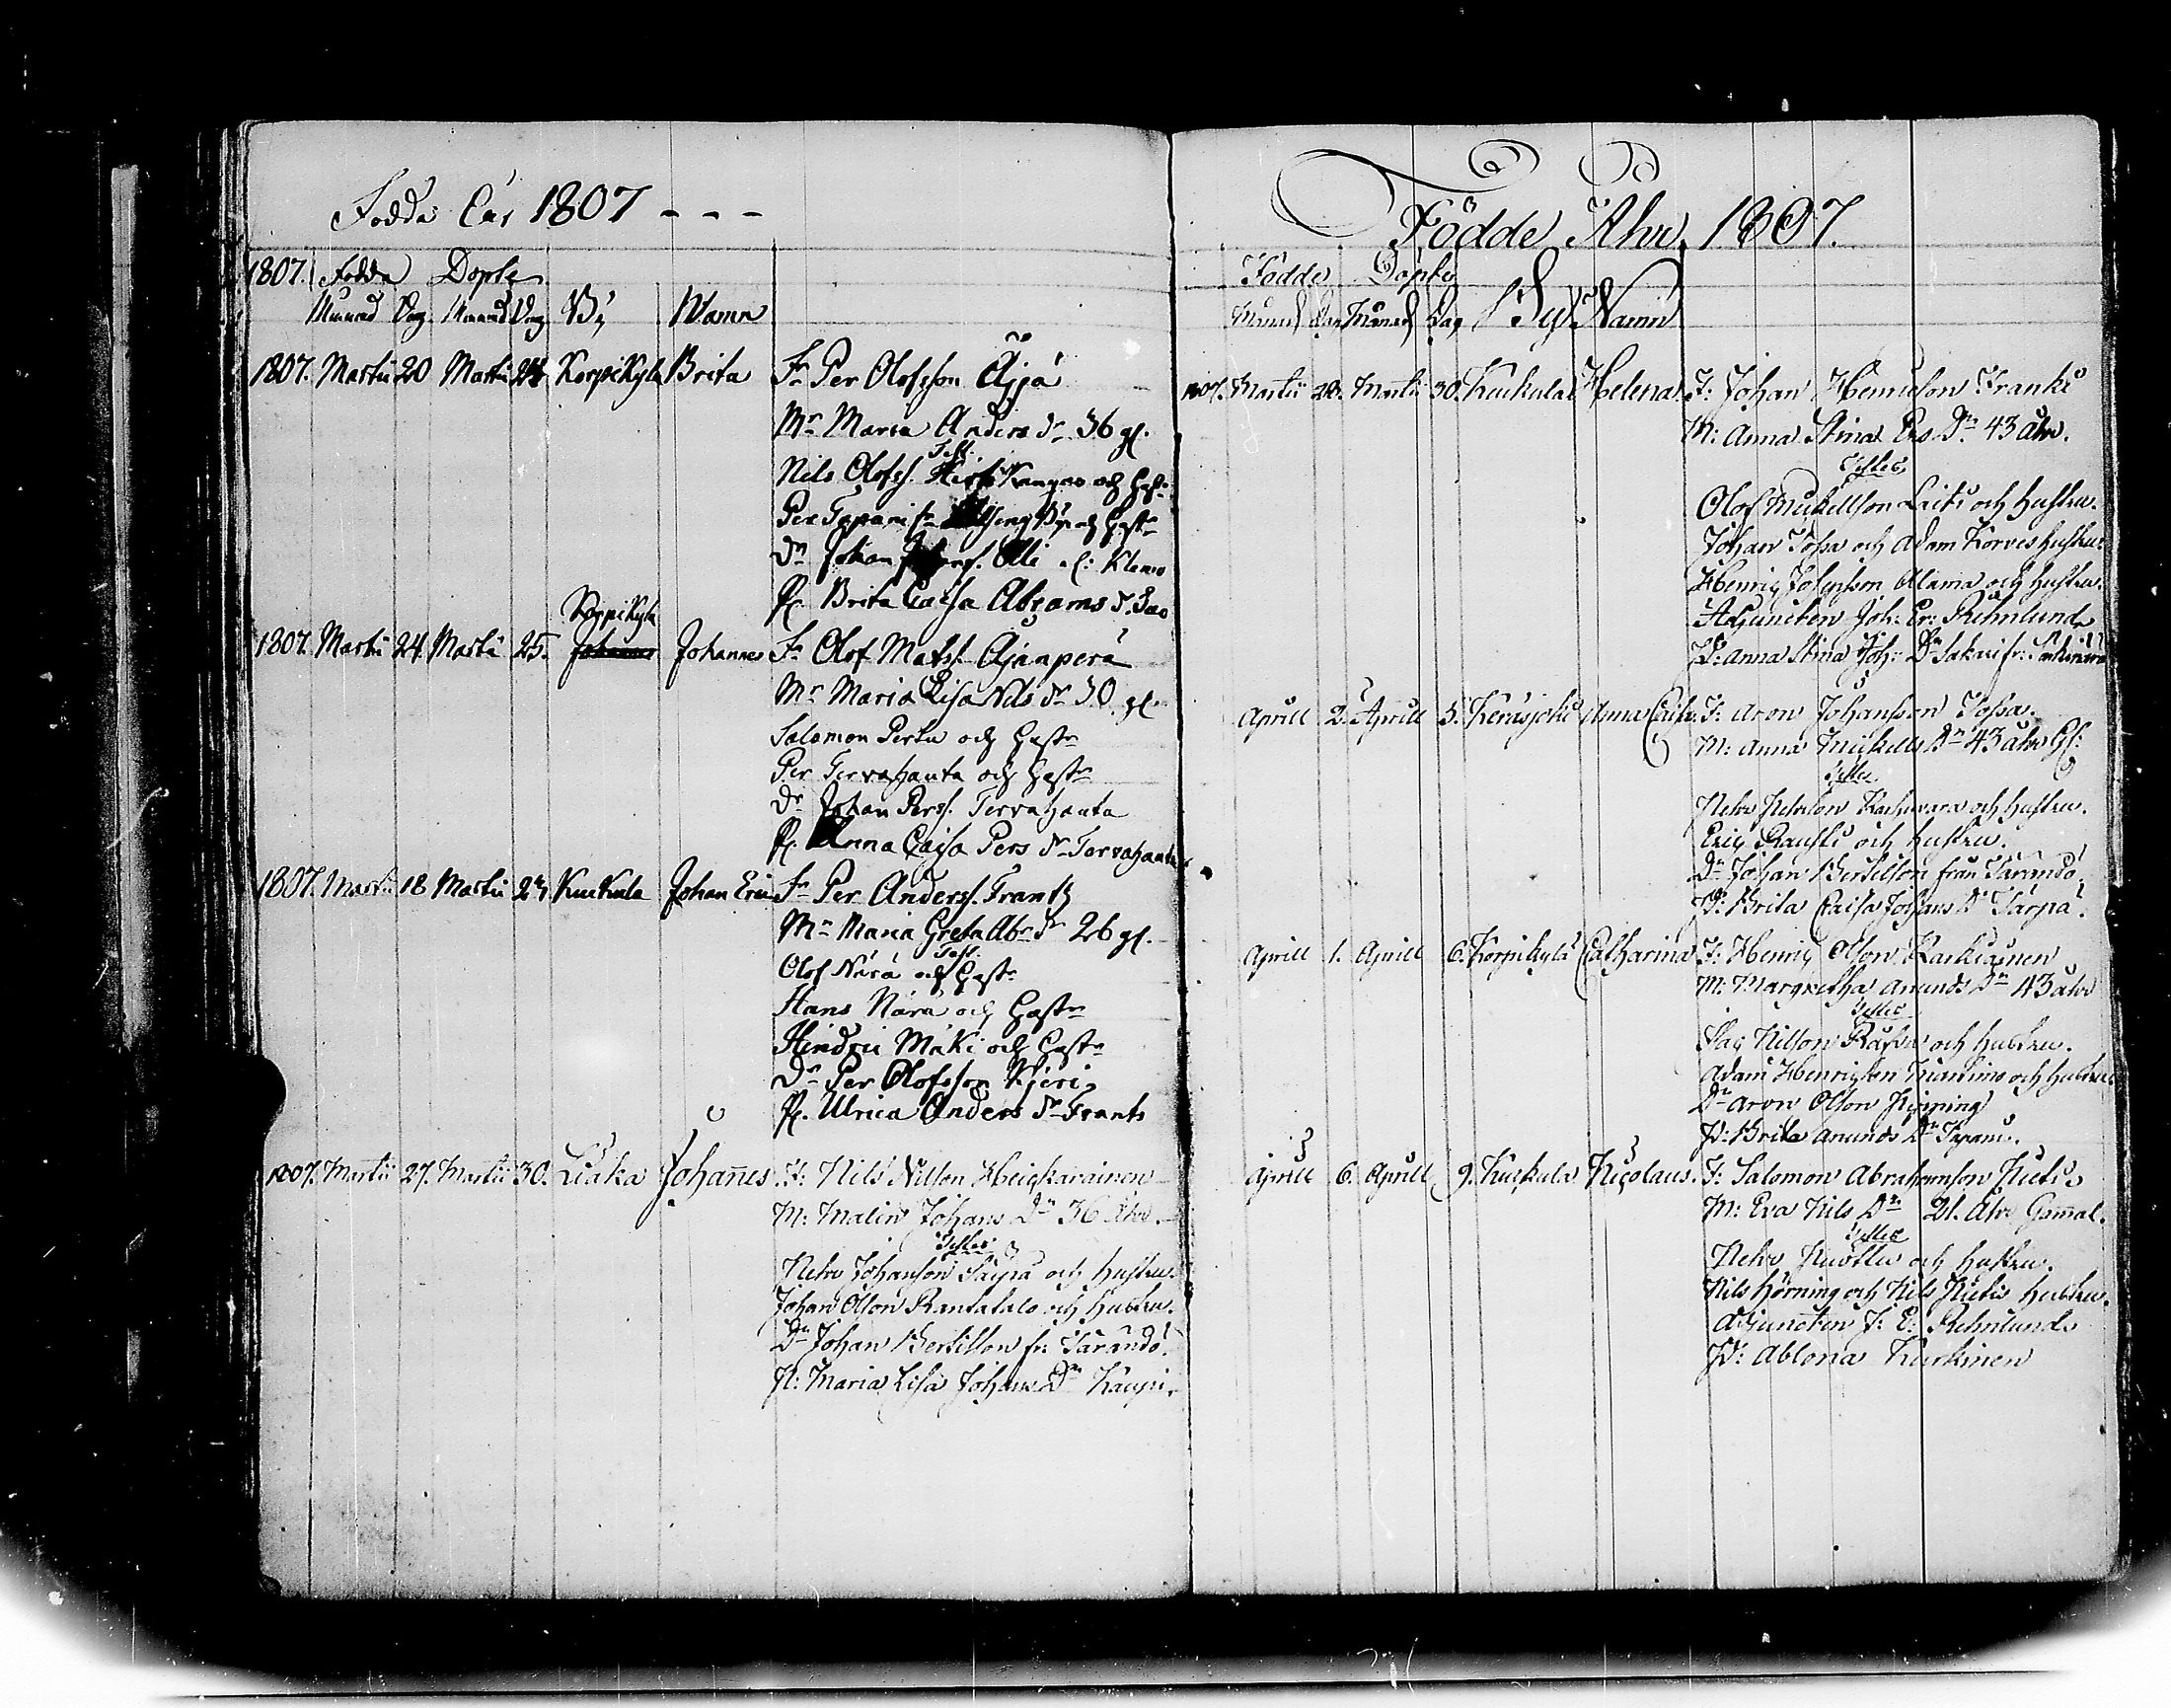 Födda Åar 1807 - - -
1807. Födda Döpte
Månad Dag. Månad Dag By Namn
1807. Martii 20 Martii 24 Korpikylä Brita Fr Per Olofsson Äijä
Mr Maria Anders dr 36 gl.
Test.
Nils Olofss. Kangas och Hust
Per Tapani och Hustr
Dr Johan Olli Klemo
P. Brita Caisa Abrams d.
Korpikylä
1807. Martii 24. Martii 25. Johannes Johannes Fr Olof Matss. Äjänperä
Mr Maria Lisa Nils dr 30 gl.
Salomon Pertu och Hustr
Per Tervahauta och Hustr
Dr Johan Perss. Tervahauta
P. Anna Caisa Pers dr Tervahauta
1807. Martii 18 Martii 27. Kuckula Johan Eric Fr Per Anderss. Frantz
Mr Maria Greta Abr dr 26 gl.
Test.
Olof Närä och Hustr
Hans Närä och Hustr
Hindric Mäki och Hustr
Dr Per Olofsson Kjeri
P. Ulrica Anders dr Frants
1807. Martii 27. Martii 30. Liaka Johañes F: Nils Nilsson Heickarainen
M: Malin Johans Dr 36 Åhr.
Testes
Petter Johanson Särpä och hustru.
Johan Olson Rantatalo och hustru.
Dr Johan Bertilson fr: Tärändö.
P: Maria Lisa Johans Dr Kaupi.
Födde Åhr 1807.
Födde Döpte
Månad Dag Månad Dag By Namn
1807. Martii 28. Martii 30. Kuckula Helena. F: Johan Henricson Franki
M: Anna Stina Ers Dr 43 åhr.
Testes
Olof Mickellson Laiti och hustru.
Johan Tossa och Adam Korves hustru
Henric Johansson Alama och hustru.
Adjuncten Joh: Er: Rehnlund
P: Anna Stina Joh: Dr Sakari fr:
Aprill 2. Aprill 5. Keräsjoki Anna Caisa. F: Aron Johansson Tossa.
M: Anna Mickells Dr 43 åhr Gl:
Testes
Petter Petterson och hustru.
Eric Rausti och hustru.
Dr Johan Bertilson från Tärändö.
P: Brita Caisa Johans Dr Särpä.
Aprill 1. Aprill 6. Korpikylä Catharina F: Henric Olson Karkiainen
M: Margretha Anunds Dr 43 åhr
Testes
Isac Nilson och hustru.
Adam Henricson och hustru
Dr Aron Olson
P: Brita Anunds Dr Tapani.
Aprill 6. Aprill 9. Kuckula Nicolaus. F: Salomon Abrahamson
M: Eva Nils Dr 21. Åhr Gamal.
Testes
Petter och hustru.
Nils Hörning och Nils hustru.
Adjuncten J: E: Rehnlund
P: Ablona Kurkinen